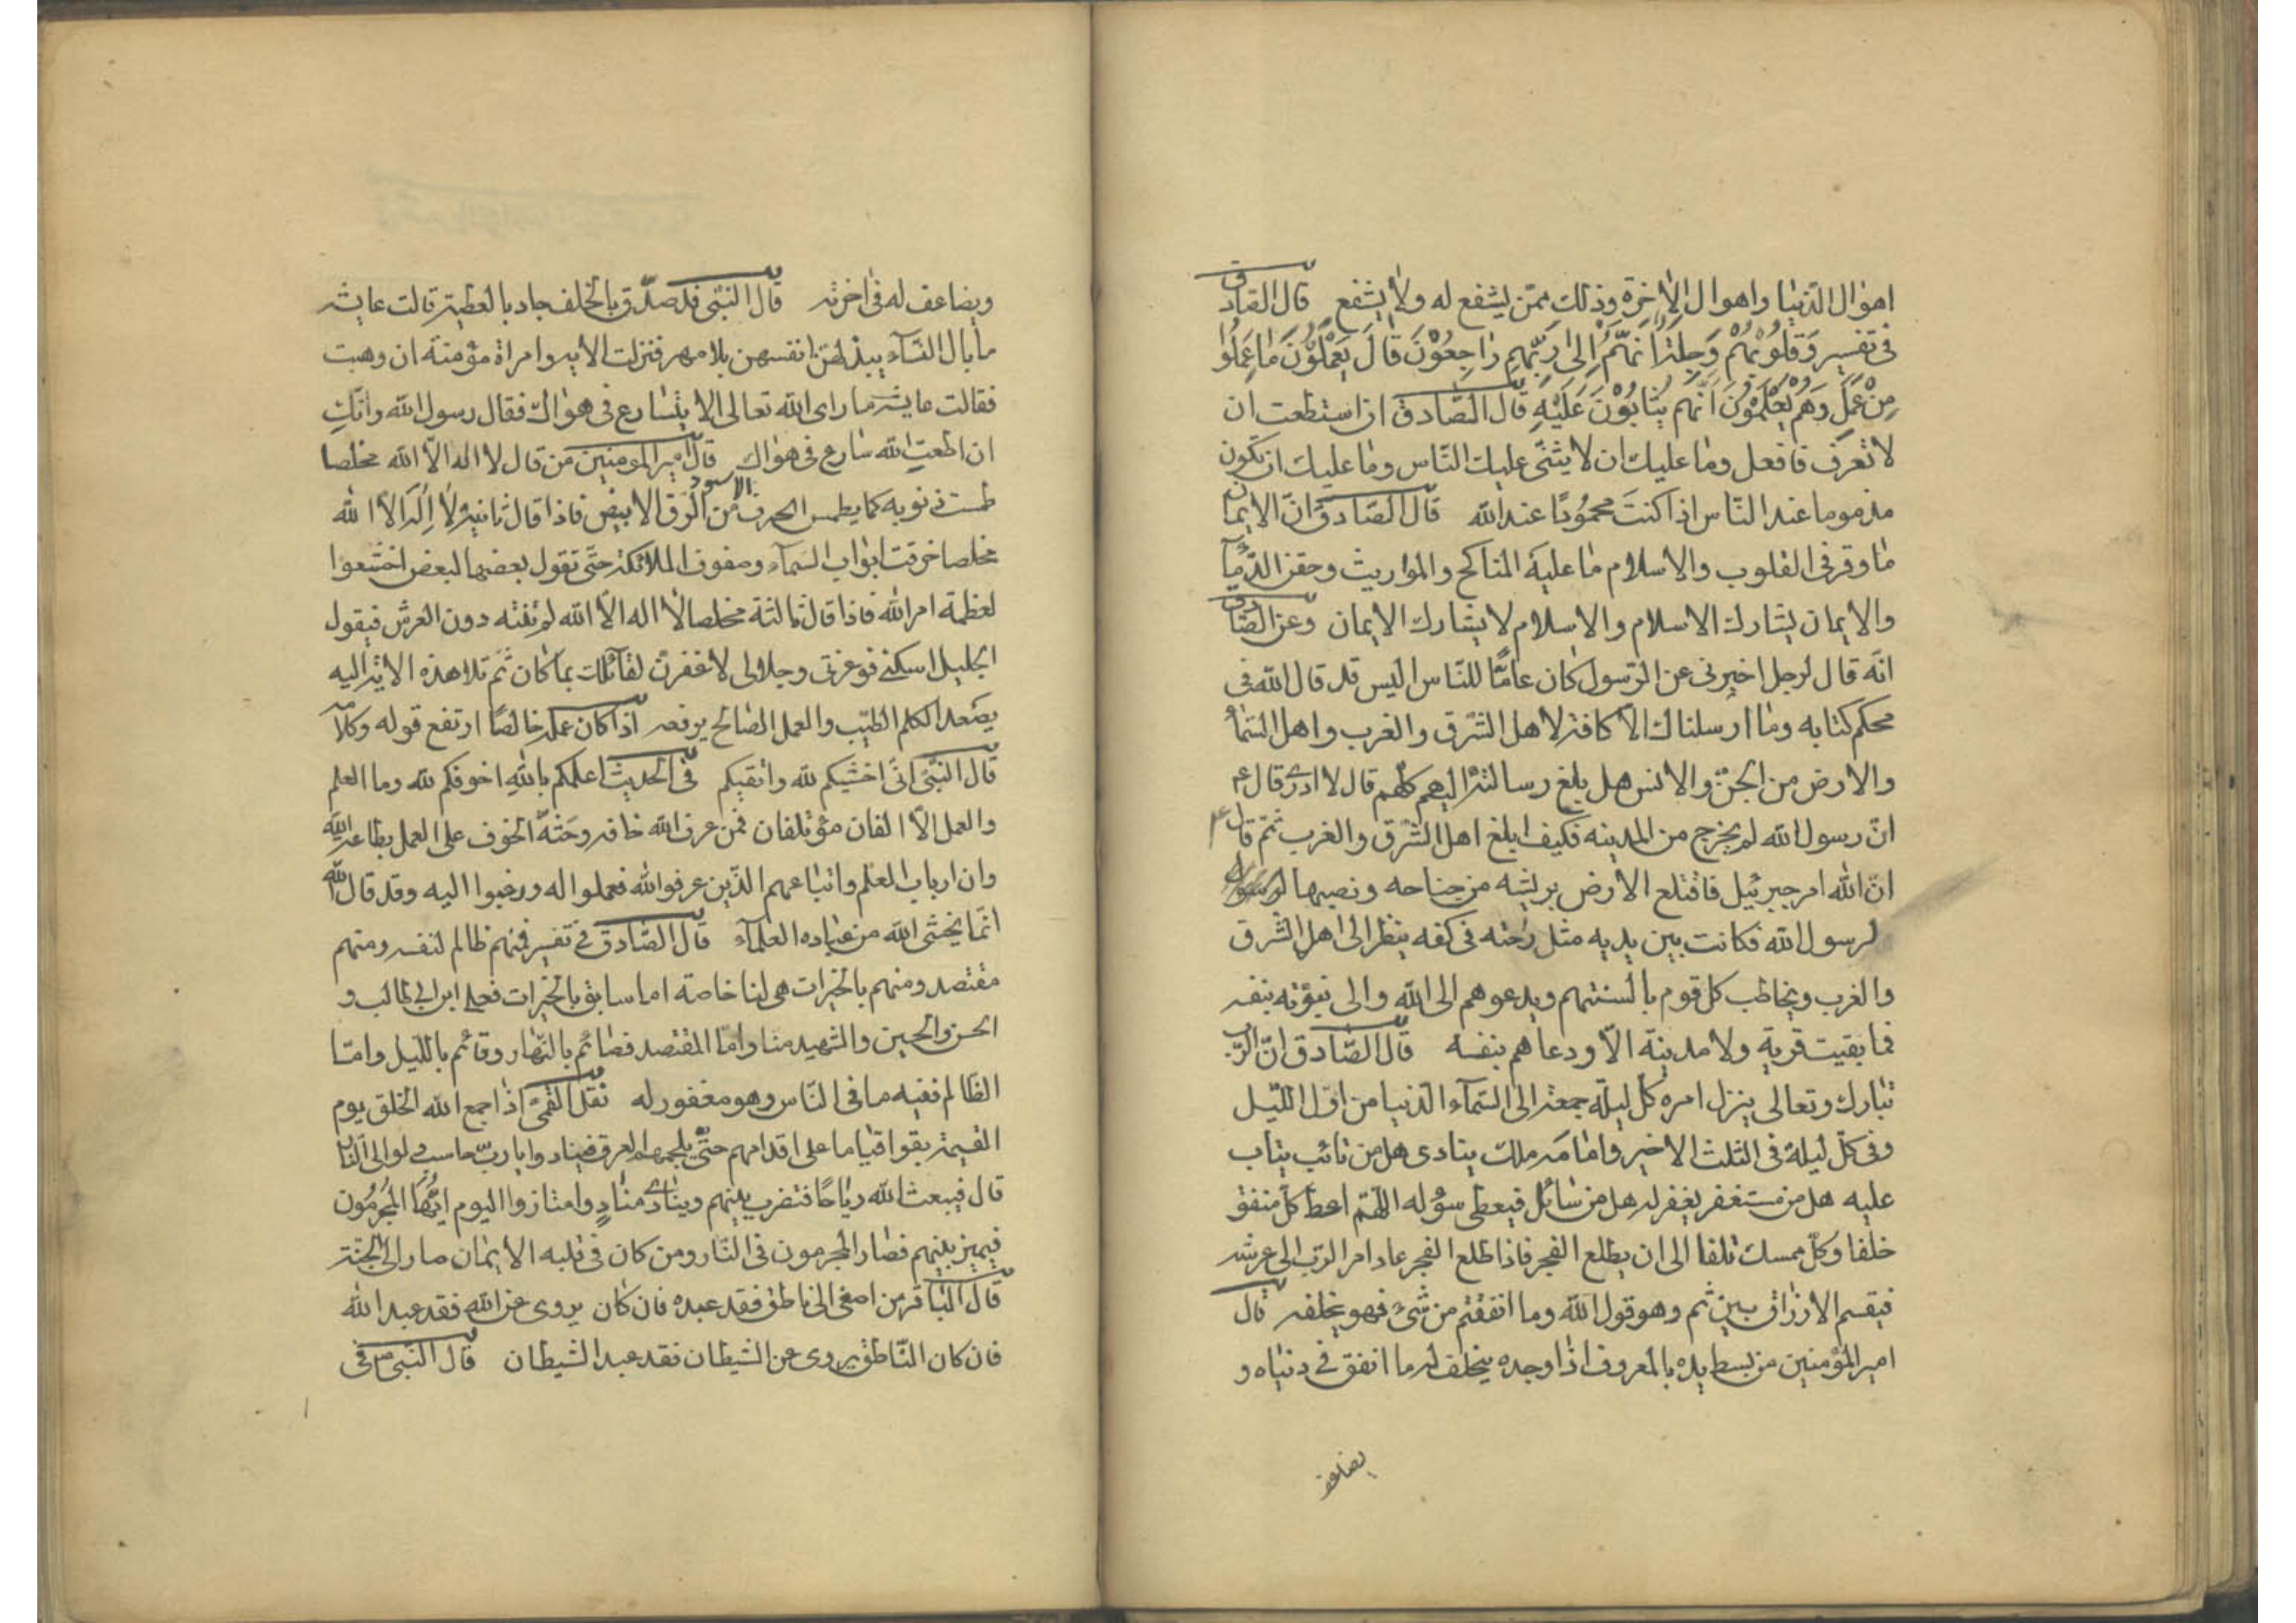 اهوال الدّنيا واهوال الاخرة وذلك ممّن يشفع له ولا يشفع قال الصّادق
فى تفسير وَقُلُوبُهُمْ وَجِلَةٌ اَنَّهُمْ اِلىٰ رَبِّهِم رٰاجِعُوْنَ قٰالَ يَعْمَلُوْنَ مٰا عَمِلُوا
مِنْ عَمَلٍ وَهُمْ يَعْلَمُوْنَ اَنَّهم يُثابُوْنَ عَلَيْهِ قال الصّادق ان استطعت ان
لا تعرف فافعل وما عليك ان لا يثنى عليك النّاس وما عليك ان تكون
مذموما عند النّاس اذا كنتَ محمُودًا عند الله قال الصّادق انّ الايمان
ما وقر فى القلوب والاسلام ما عليه المناكح والمواريث وحقن الدّمآ
والايمان يشارك الاسلام والاسلام لا يشارك الايمان وعن الصّادق
انّه قال لرجل اخبرنى عن الرّسول كان عامًّا للنّاس اليس قد قال الله فى
محكم كتابه وما ارسلناك الّا كافة لاهل الشّرق والغرب واهل السّمآ
والارض من الجنّ والانس هل بلغ رسالته اليهم كلّهم قال لا ادرى قال ع
انّ رسول الله لم يخرج من المدينه فكيف ابلغ اهل الشّرق والغرب ثمّ قال ع
انّ الله امر جبرئيل فاقتلع الارض بريشه من جناحه ونصبها
لرسول الله فكانت بين يديه مثل راحته فى كفه ينظر الى اهل الشّرق
والغرب ويخاطب كل قوم بالسنتهم ويدعوهم الى الله والى نبوّته بنفسه
فما بقيت قرية ولا مدينة الّا ودعاهم بنفسه قال الصّادق انّ الرّب
تبارك وتعالى ينزل امره كلّ ليلة جمعة الى السّمآء الدّنيا من اوّل اللّيل
وفى كلّ ليلة فى الثلث الاخير وامامه ملك ينادى هل من تائب يتاب
عليه هل من مستغفر يغفر له هل من سائل فيعطى سؤله اللّهمّ اعط كلّ منفق
خلفا وكلّ ممسك تلفا الى ان يطلع الفجر فاذا طلع الفجر عاد امر الرّب الى عرشه
فيقسم الارزاق بين ثم وهو قول الله وما انفقتم من شئ فهو يخلفه قال
امير المؤمنين من بسط يده بالمعروف اذا وجده يخلف له ما انفق فى دنياه و
يضاعف
ويضاعف له فى اخرته قال النبّى قد صدّق بالخلف جاد بالعطية قالت عايشه
ما بال النّسآء يبذلن انفسهن بلا مهر فنزلت الايه وامراة مؤمنة ان وهبت
فقالت عايشه ما راى الله تعالى الا يسارع فى هواك فقال رسول الله وانّكِ
ان اطعتِ الله سارع فى هواك قال امير المومنين من قال لا اله الّا الله مخلصا
طمست ذنوبه كما يطمس الحرف الاسود من الرّق الابيض فاذا قال ثانية لا اِلٰه الّا الله
مخلصا خرقت ابواب السّمآء وصفوف الملائكة حتّى تقول بعضها لبعض اخشعوا
لعظمة امر الله فاذا قال ثالثة مخلصا لا اله الّا الله لم تنته دون العرش فيقول
الجليل اسكنى فوعزتى وجلالى لاغفرنّ لقائلك بما كان ثم تلا هذه الاية اليه
يصعد الكلم الطيّب والعمل الصّالح يرفعه اذا كان عمله خالصًا ارتفع قوله وكلامه
قال النّبىّ انّى اخشيكم لله واتقيكم فى الحديث اعلمكم بالله اخوفكم لله وما العلم
والعمل الّا الفان مؤتلفان فمن عرف الله خافه وحثّه الخوف على العمل بطاعة الله
وان ارباب العلم واتباعهم الّذين عرفوا الله فعملوا له ورغبوا اليه وقد قال الله
انّما يخشى الله من عباده العلمآء قال الصّادق فى تفسير فمنهم ظالم لنفسه ومنهم
مقتصد ومنهم بالخيرات هى لنا خاصة اما سابق بالخيرات فعلى ابن ابى طالب و
الحسن والحسين والشهيد منا وامّا المقتصد فصائم بالنّهار وقائم باللّيل وامّا
الظّالم ففيه ما فى النّاس وهو مغفور له نقل القمّى اذا جمع الله الخلق يوم
القيمة بقوا قياما على اقدامهم حتّى يلجمهم العرق فينادوا يا ربّ حاسب لو الى النّار
قال فيبعث الله رياحًا فتضرب بينهم وينادى منادٍ وامتازوا اليوم ايّها المُجرمُون
فيميز بينهم فصار المجرمون فى النّار ومن كان فى قلبه الايمان صار الى الجنّة
قال البّاقر من اصغى الى ناطق فقد عبده فان كان يروى عن الله فقد عبد الله
فان كان النّاطق يروى عن الشيطان فقد عبد الشيطان قال النّبى ص فى